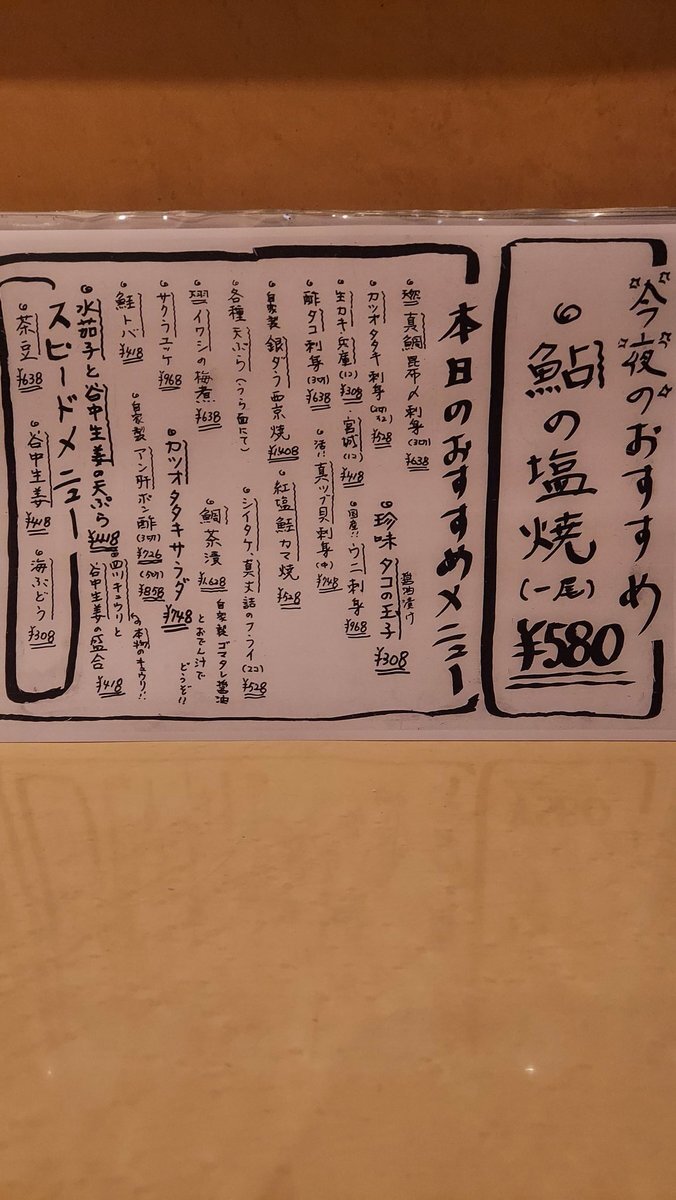 今夜のおすすめ
鮎の塩焼(一尾)
¥580
本日のおすすめメニュー
真鯛昆布〆刺身(3切) ¥638
珍味タコの王子 ¥308
醤油漬け
カツオタタキ刺身 ¥528
生カキ・兵庫(1コ) ¥308・宮城(1コ) ¥418
国産!!ウニ刺身 ¥968
酢タコ刺身(3切) ¥638
活!!真ツブ貝刺身(中) ¥748
自家製銀ダラ西京焼 ¥1408
紅塩鮭カマ焼 ¥528
各種天ぷら(うら面にて)
シイタケ、真丈詰のフ・フライ(2コ) ¥528
イワシの梅煮 ¥638
鯛茶漬 ¥628
自家製ゴマタレ醤油
とおでん汁で
どうぞ!!
サクラユッケ ¥968
カツオタタキサラダ ¥748
鮭トバ ¥418
自家製アン肝ポン酢(3切) ¥726
(5切) ¥858
水茄子と谷中生姜の天ぷら ¥418
四川キュウリと
谷中生姜の盛合 ¥418
本物のキュウリ!!
スピードメニュー
茶豆 ¥638
谷中生姜 ¥418
海ぶどう ¥308